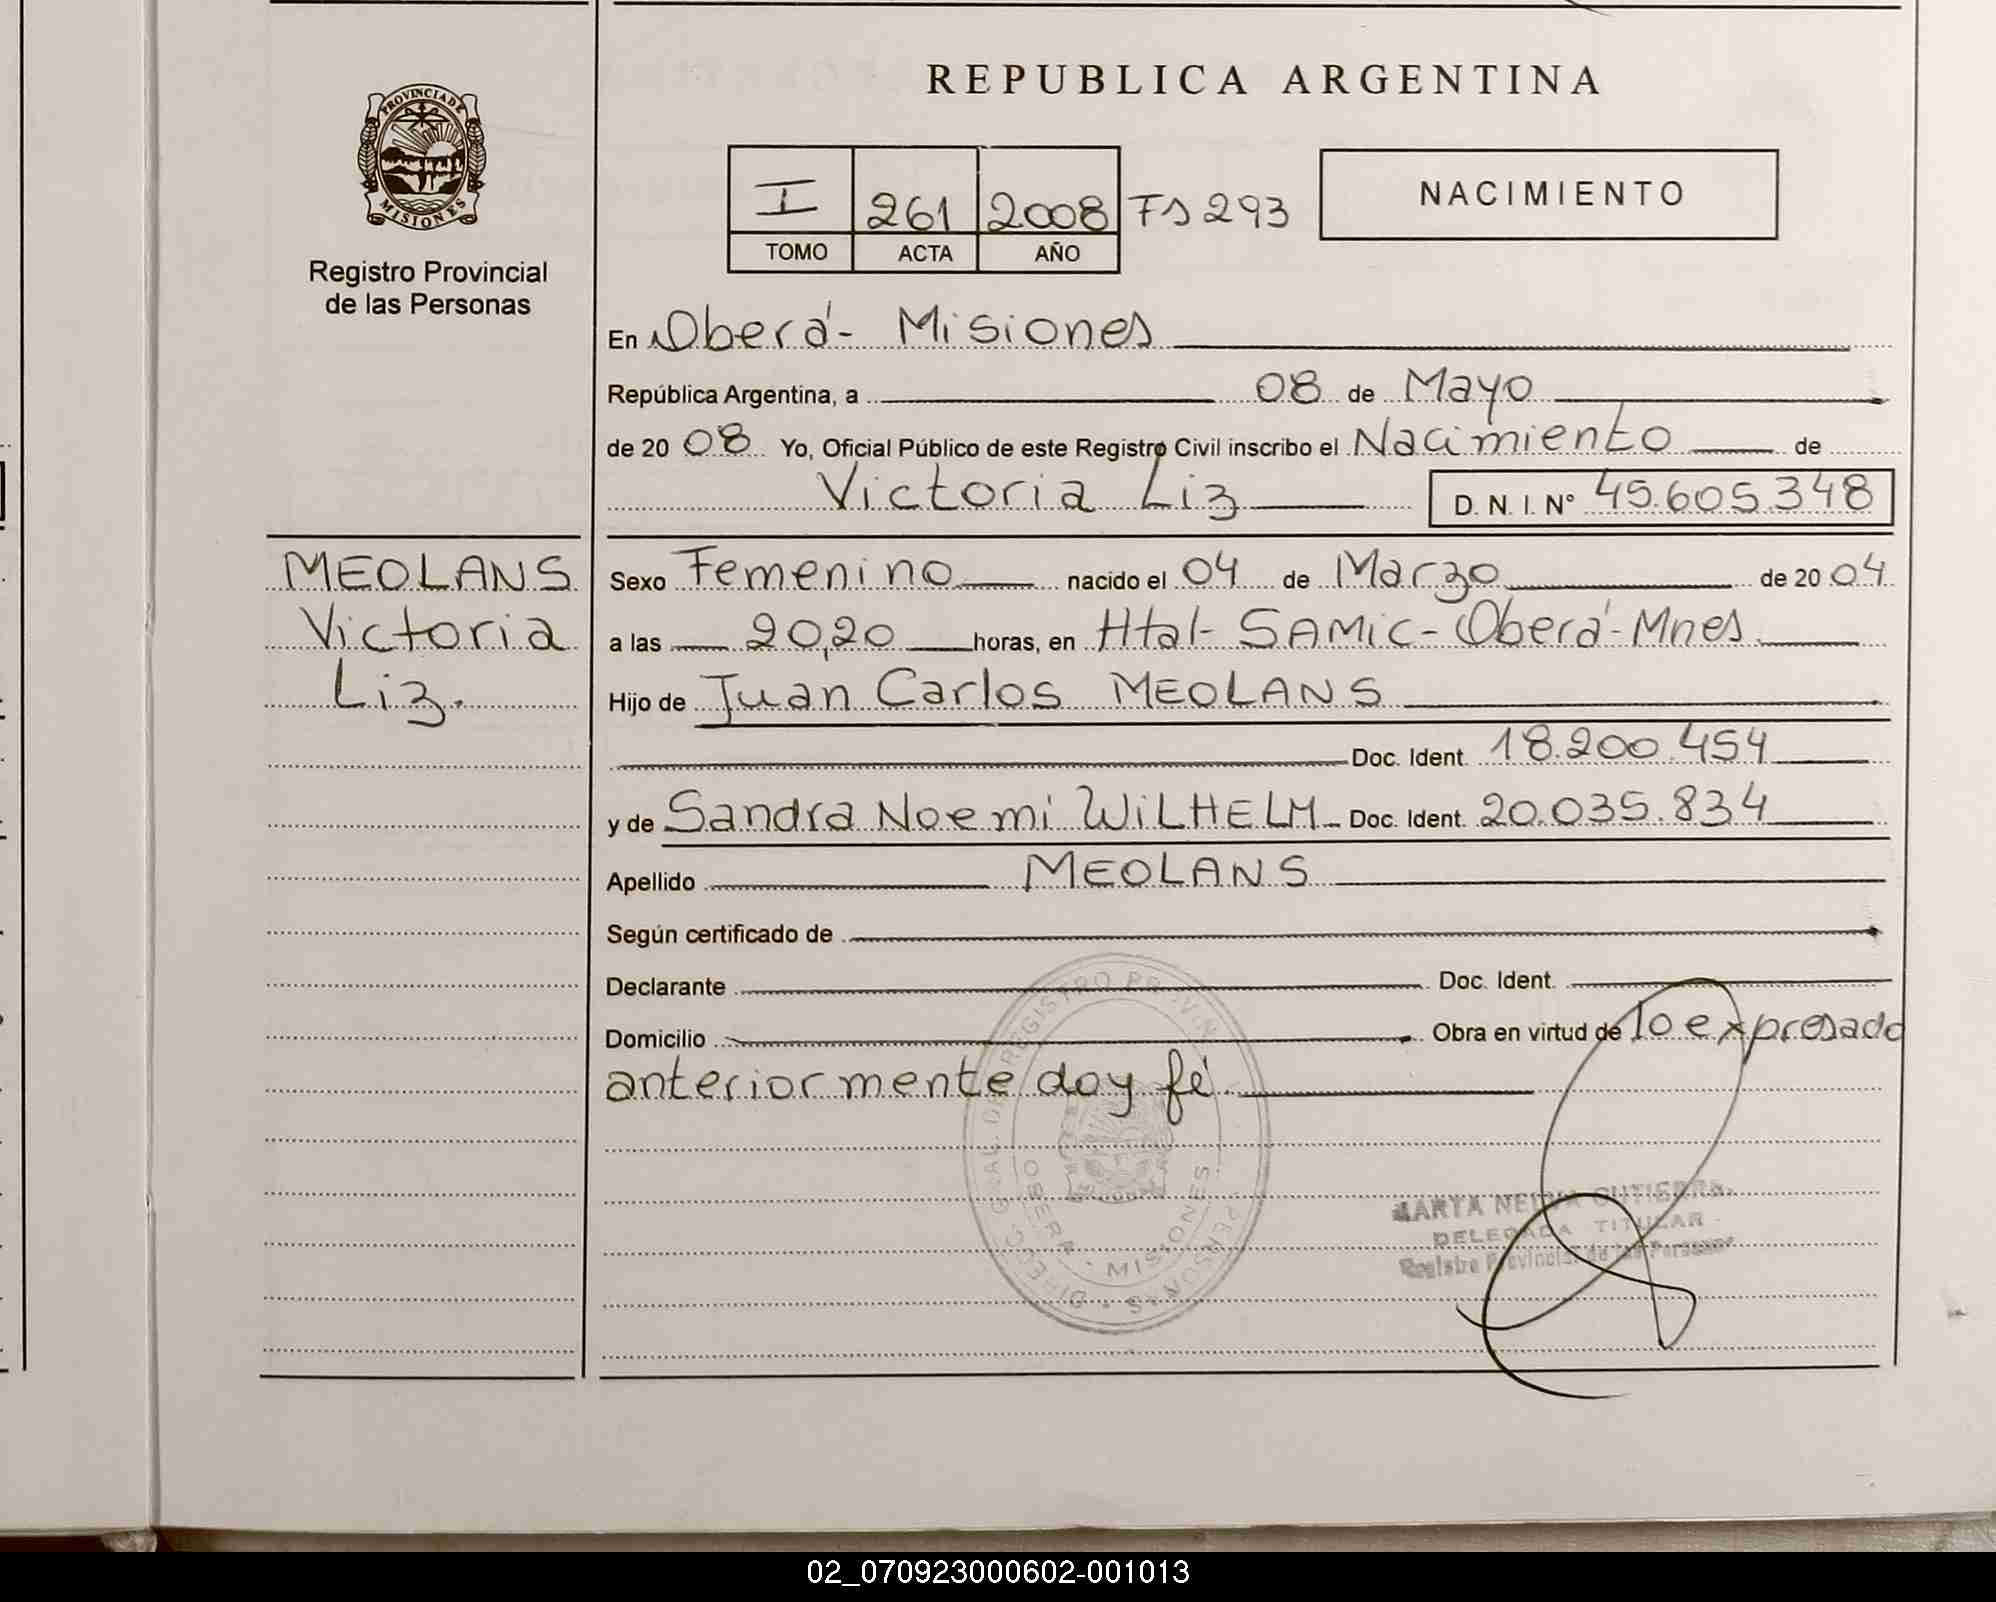 REPUBLICA ARGENTINA
PROVINCIA DE MISIONES
Registro Provincial
de las Personas
I 261 2008 Fs 293
TOMO ACTA AÑO
NACIMIENTO
En Oberá- Misiones
República Argentina, a 08 de Mayo
de 20 08 Yo, Oficial Público de este Registro Civil inscribo el Nacimiento de
Victoria Liz D. N. I. N° 45.605.348
MEOLANS
Victoria
Liz.
Sexo Femenino nacido el 04 de Marzo de 20 04
a las 20,20 horas, en Htal- SAMIC- Oberá- Mnes
Hijo de Juan Carlos MEOLANS
Doc. Ident. 18.200.454
y de Sandra Noemi WILHELM Doc. Ident. 20.035.834
Apellido MEOLANS
Según certificado de
Declarante Doc. Ident.
Domicilio Obra en virtud de lo expresado
anteriormente doy fé
DIRECC. GRAL. DE REGISTRO PROVIN PERSONAS
OBERA - MISIONES
MARTA GUTIERR
DELEGADA TITULAR
Registro Provincial de las Personas
02_070923000602-001013